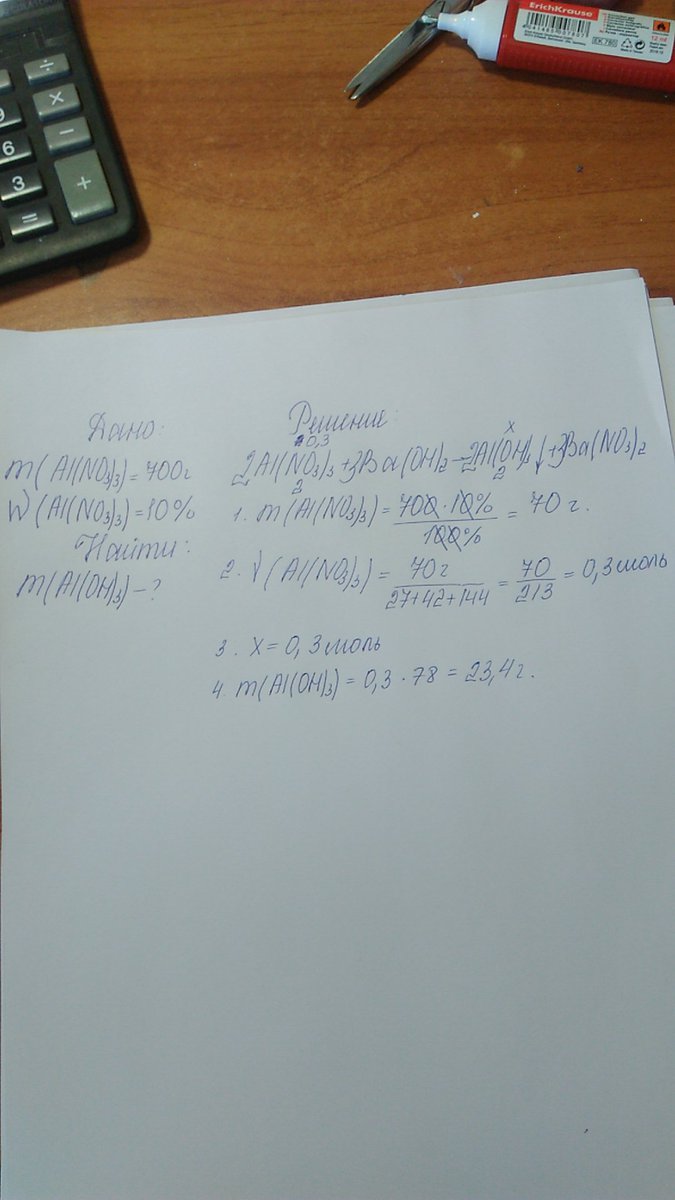 ErichKrause
12 ml
÷
9 ×
6 −
3 +
=
Дано:
m(Al(NO3)3) = 700г
W(Al(NO3)3) = 10%
Найти:
m(Al(OH)3) – ?
Решение:
0,3 x
2Al(NO3)3 + 3Ba(OH)2 – 2Al(OH)3↓ + 3Ba(NO3)2
2 2
1. m(Al(NO3)3) = 700 · 10% / 100% = 70 г.
2. V(Al(NO3)3) = 70 г / 27+42+144 = 70 / 213 = 0,3 моль
3. X = 0,3 моль
4. m(Al(OH)3) = 0,3 · 78 = 23,4 г.